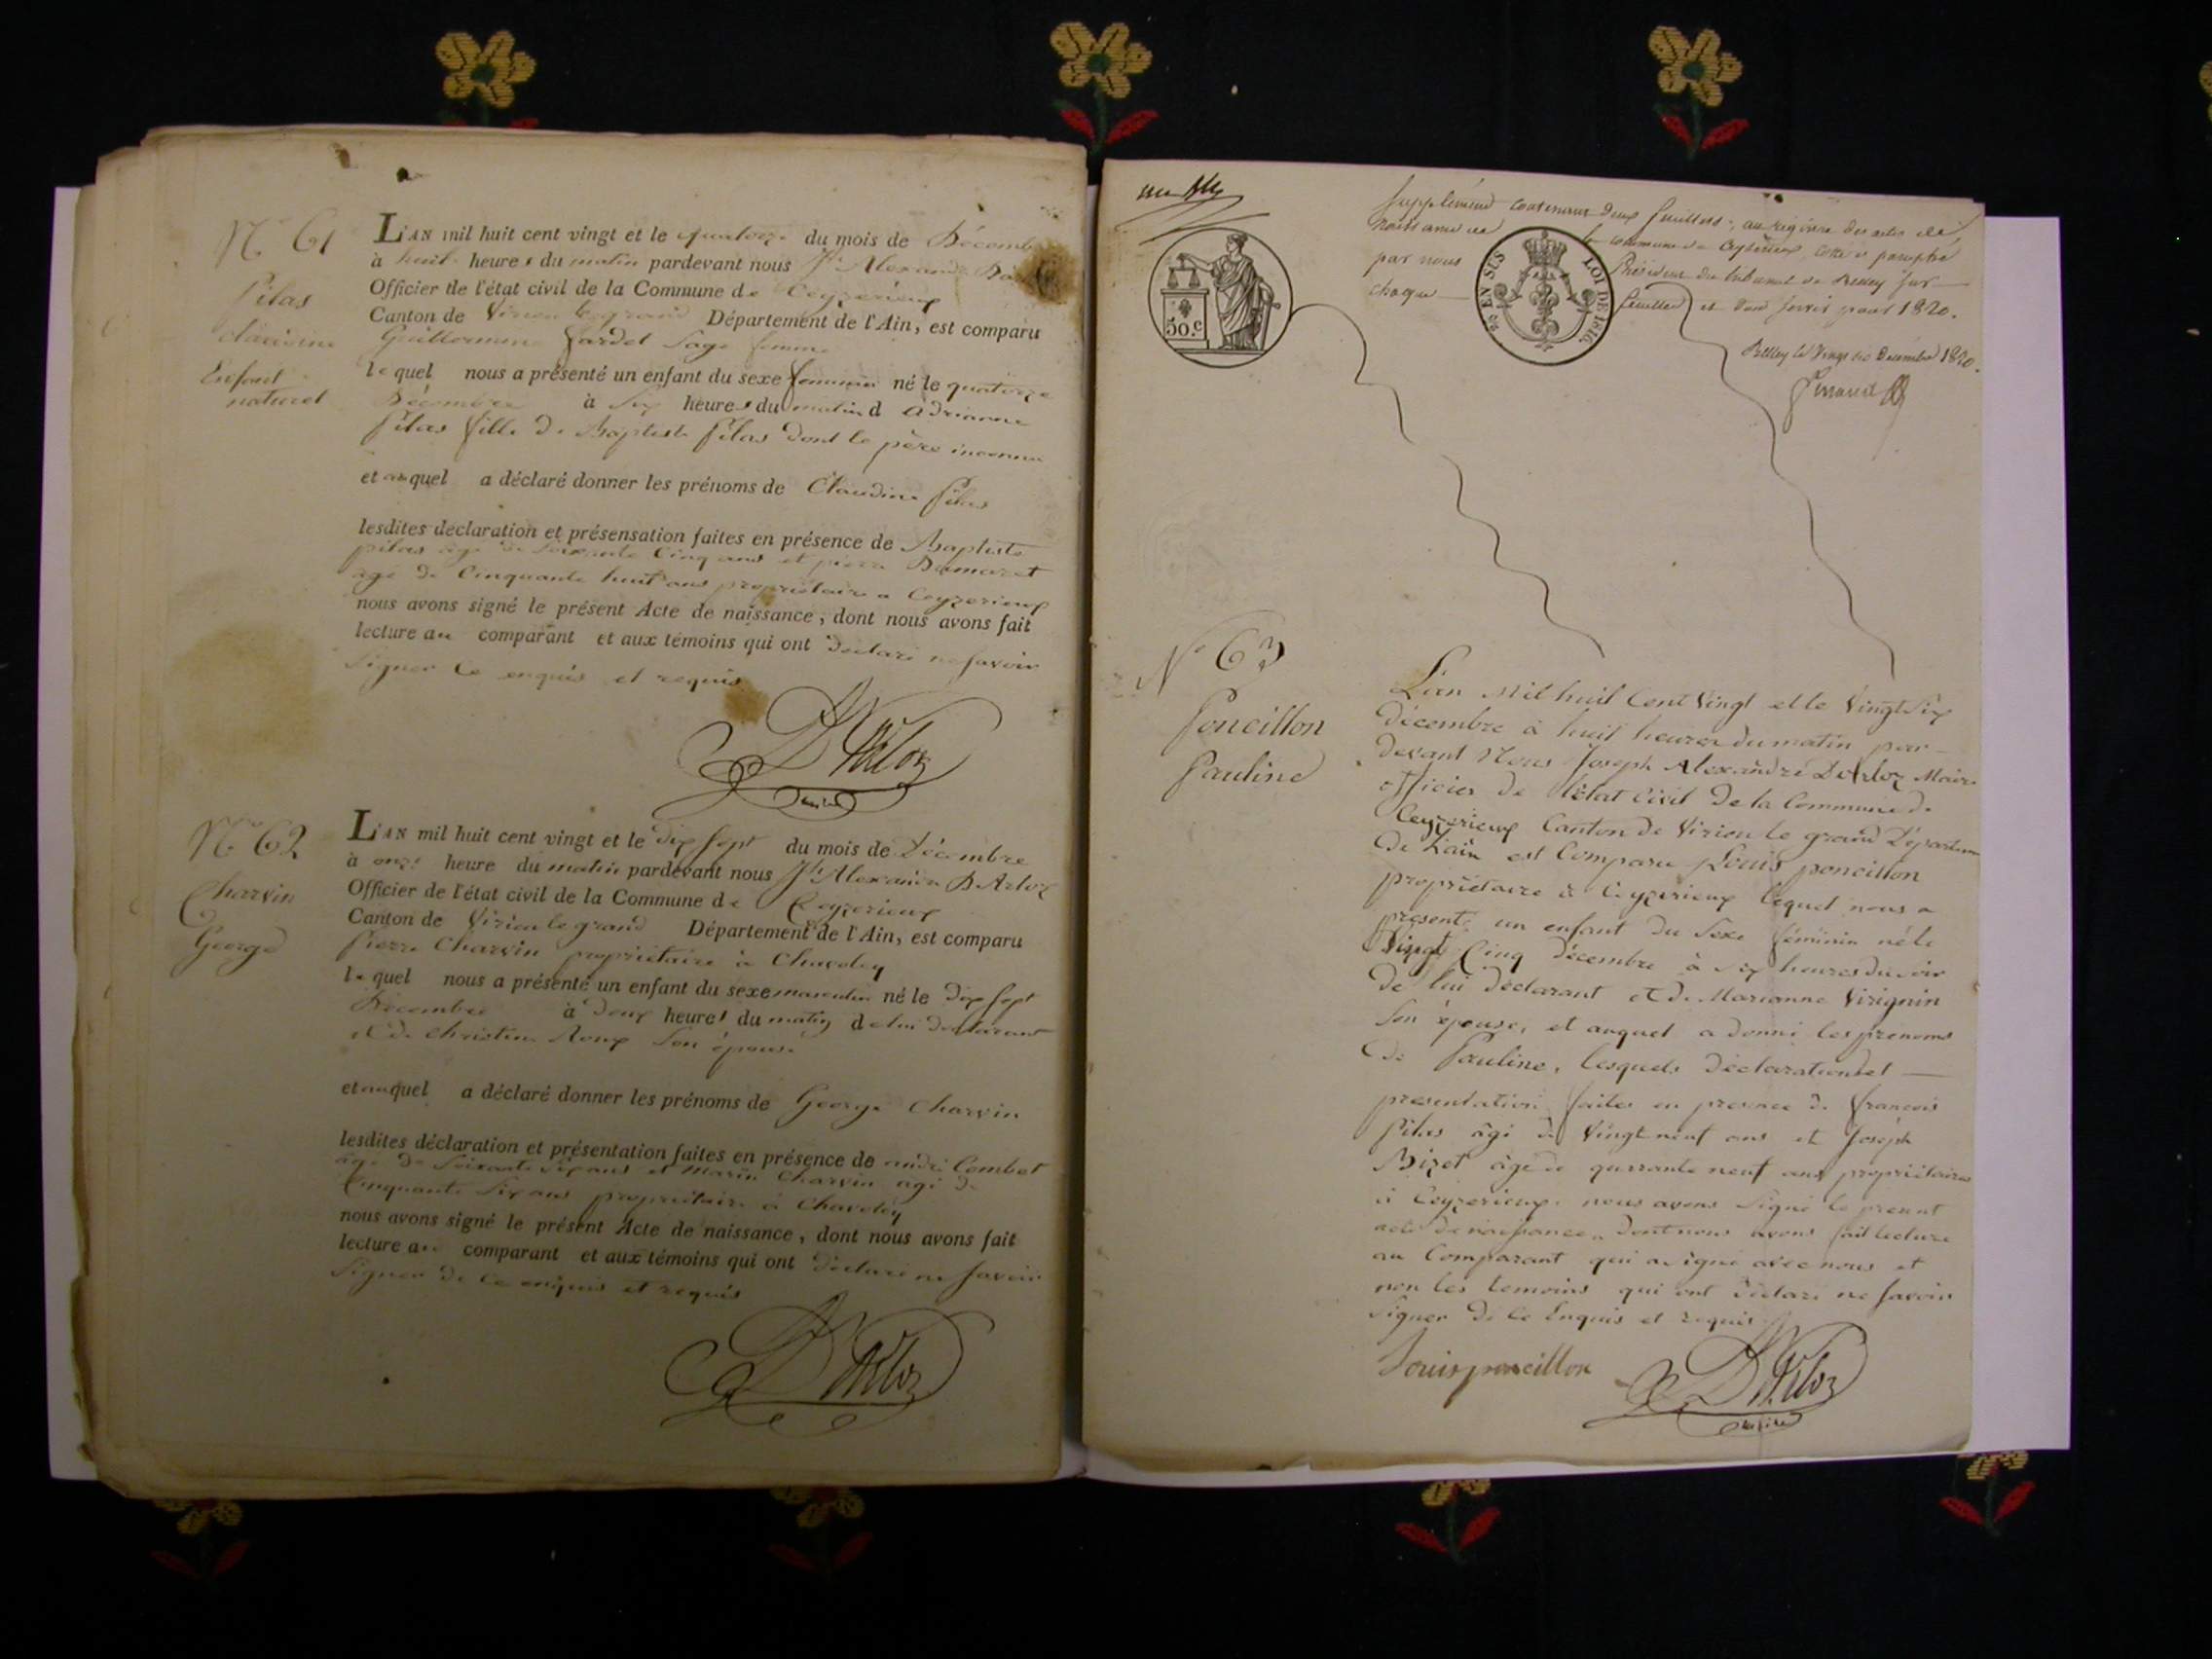 N° 61
Pilas
claudine
Enfant
naturel
L'AN mil huit cent vingt et le quatorze du mois de Décemb
à huit heures du matin pardevant nous Jh Alexandre
Officier de l'état civil de la Commune de Ceyzerieux
Canton de Virieu le grand Département de l'Ain, est comparu
Guillermine Fardel Sage femme
lequel nous a présenté un enfant du sexe feminin né le quatorze
Décembre à Six heures du matin d Adrianne
Pilas fille de Baptiste Pilas dont le père inconnu
et auquel a déclaré donner les prénoms de Claudine Pilas
lesdites declaration et présensation faites en présence de Baptiste
pilas âgé de soixante Cinq ans et pierre Dumaret
agé de Cinquante huit ans propriétaire a Ceyzerieux
nous avons signé le présent Acte de naissance, dont nous avons fait
lecture au comparant et aux témoins qui ont déclaré ne savoir
signer Ce enquis et requis
D'Arloz
maire
N° 62
Charvin
George
L'AN mil huit cent vingt et le dix sept du mois de Décembre
à onze heure du matin pardevant nous Jh Alexandre D'Arloz
Officier de l'état civil de la Commune de Ceyzerieux
Canton de Virieu le grand Département de l'Ain, est comparu
pierre Charvin propriétaire à Chavoley
lequel nous a présenté un enfant du sexe masculin né le dix sept
Décembre à deux heures du matin de lui déclarant
et de Christine Roux Son épouse
et auquel a déclaré donner les prénoms de George Charvin
lesdites déclaration et présentation faites en présence de andré Combet
âgé de Soixante Six ans et Marin Charvin agé de
Cinquante Six ans propriétaire à Chavoley
nous avons signé le présent Acte de naissance, dont nous avons fait
lecture au comparant et aux témoins qui ont déclaré ne savoir
Signer de Ce enquis et requis
D'Arloz
Supplément contenant deux feuillets, au régistre des actes de
naissance de la commune de Ceyzerieux, cotté et paraphé
par nous Président du tribunal de Belley sur
chaque feuillet et dont servir pour 1820.
Belley le Vingt six Décembre 1820.
50.c
EN SUS
LOI DE 1816.
N° 63
Poncillon
Pauline
L'an Mil huit Cent Vingt et le Vingt Six
décembre à huit heures du matin par-
devant Nous Joseph Alexandre D'Arloz Maire
officier de l'état Civil de la Commune de
Ceyzerieux Canton de Virieu le grand Départem
De Lain est Comparu Louis poncillon
propriétaire à Ceyzerieux lequel nous a
présenté un enfant du Sexe féminin né le
Vingt Cinq décembre à six heures du soir
de lui déclarant et de Marianne Virignin
Son épouse, et auquel a donné les prenoms
de Pauline, lesquels déclaration et
presentation faites en presence de françois
Pilas âgé de Vingt neuf ans et Joseph
Bizet âgé de quarante neuf ans propriétaires
à Ceyzerieux. nous avons Signé le present
acte de naissance, dont nous avons fait lecture
au Comparant qui a signé avec nous et
non les temoins qui ont déclaré ne savoir
signer de Ce Enquis et requis
Louis poncillon
D'Arloz
maire